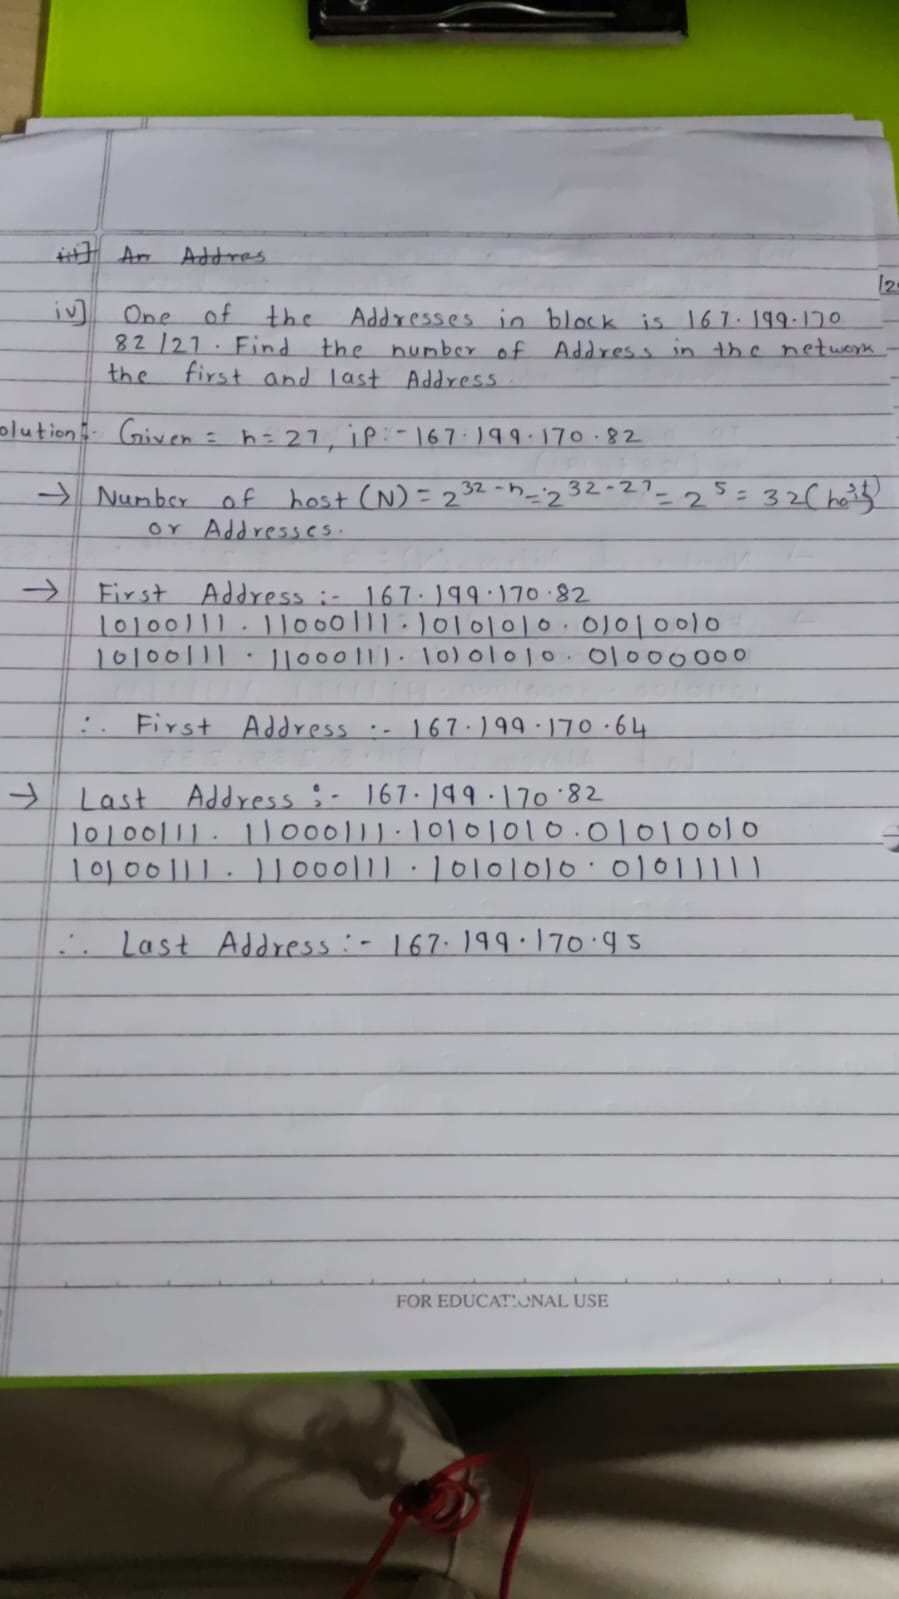 iii] An Addres
12
iv] One of the Addresses in block is 167.199.170
82/27. Find the number of Address in the network
the first and last Address.
olution:- Given = n=27, ip:-167.199.170.82
→ Number of host (N) = 2^32-n = 2^32-27 = 2^5 = 32 (host)
or Addresses.
→ First Address :- 167.199.170.82
10100111.11000111.10101010.01010010
10100111.11000111.10101010.01000000
∴ First Address :- 167.199.170.64
→ Last Address :- 167.199.170.82
10100111.11000111.10101010.01010010
10100111.11000111.10101010.01011111
∴ Last Address :- 167.199.170.95
FOR EDUCATIONAL USE